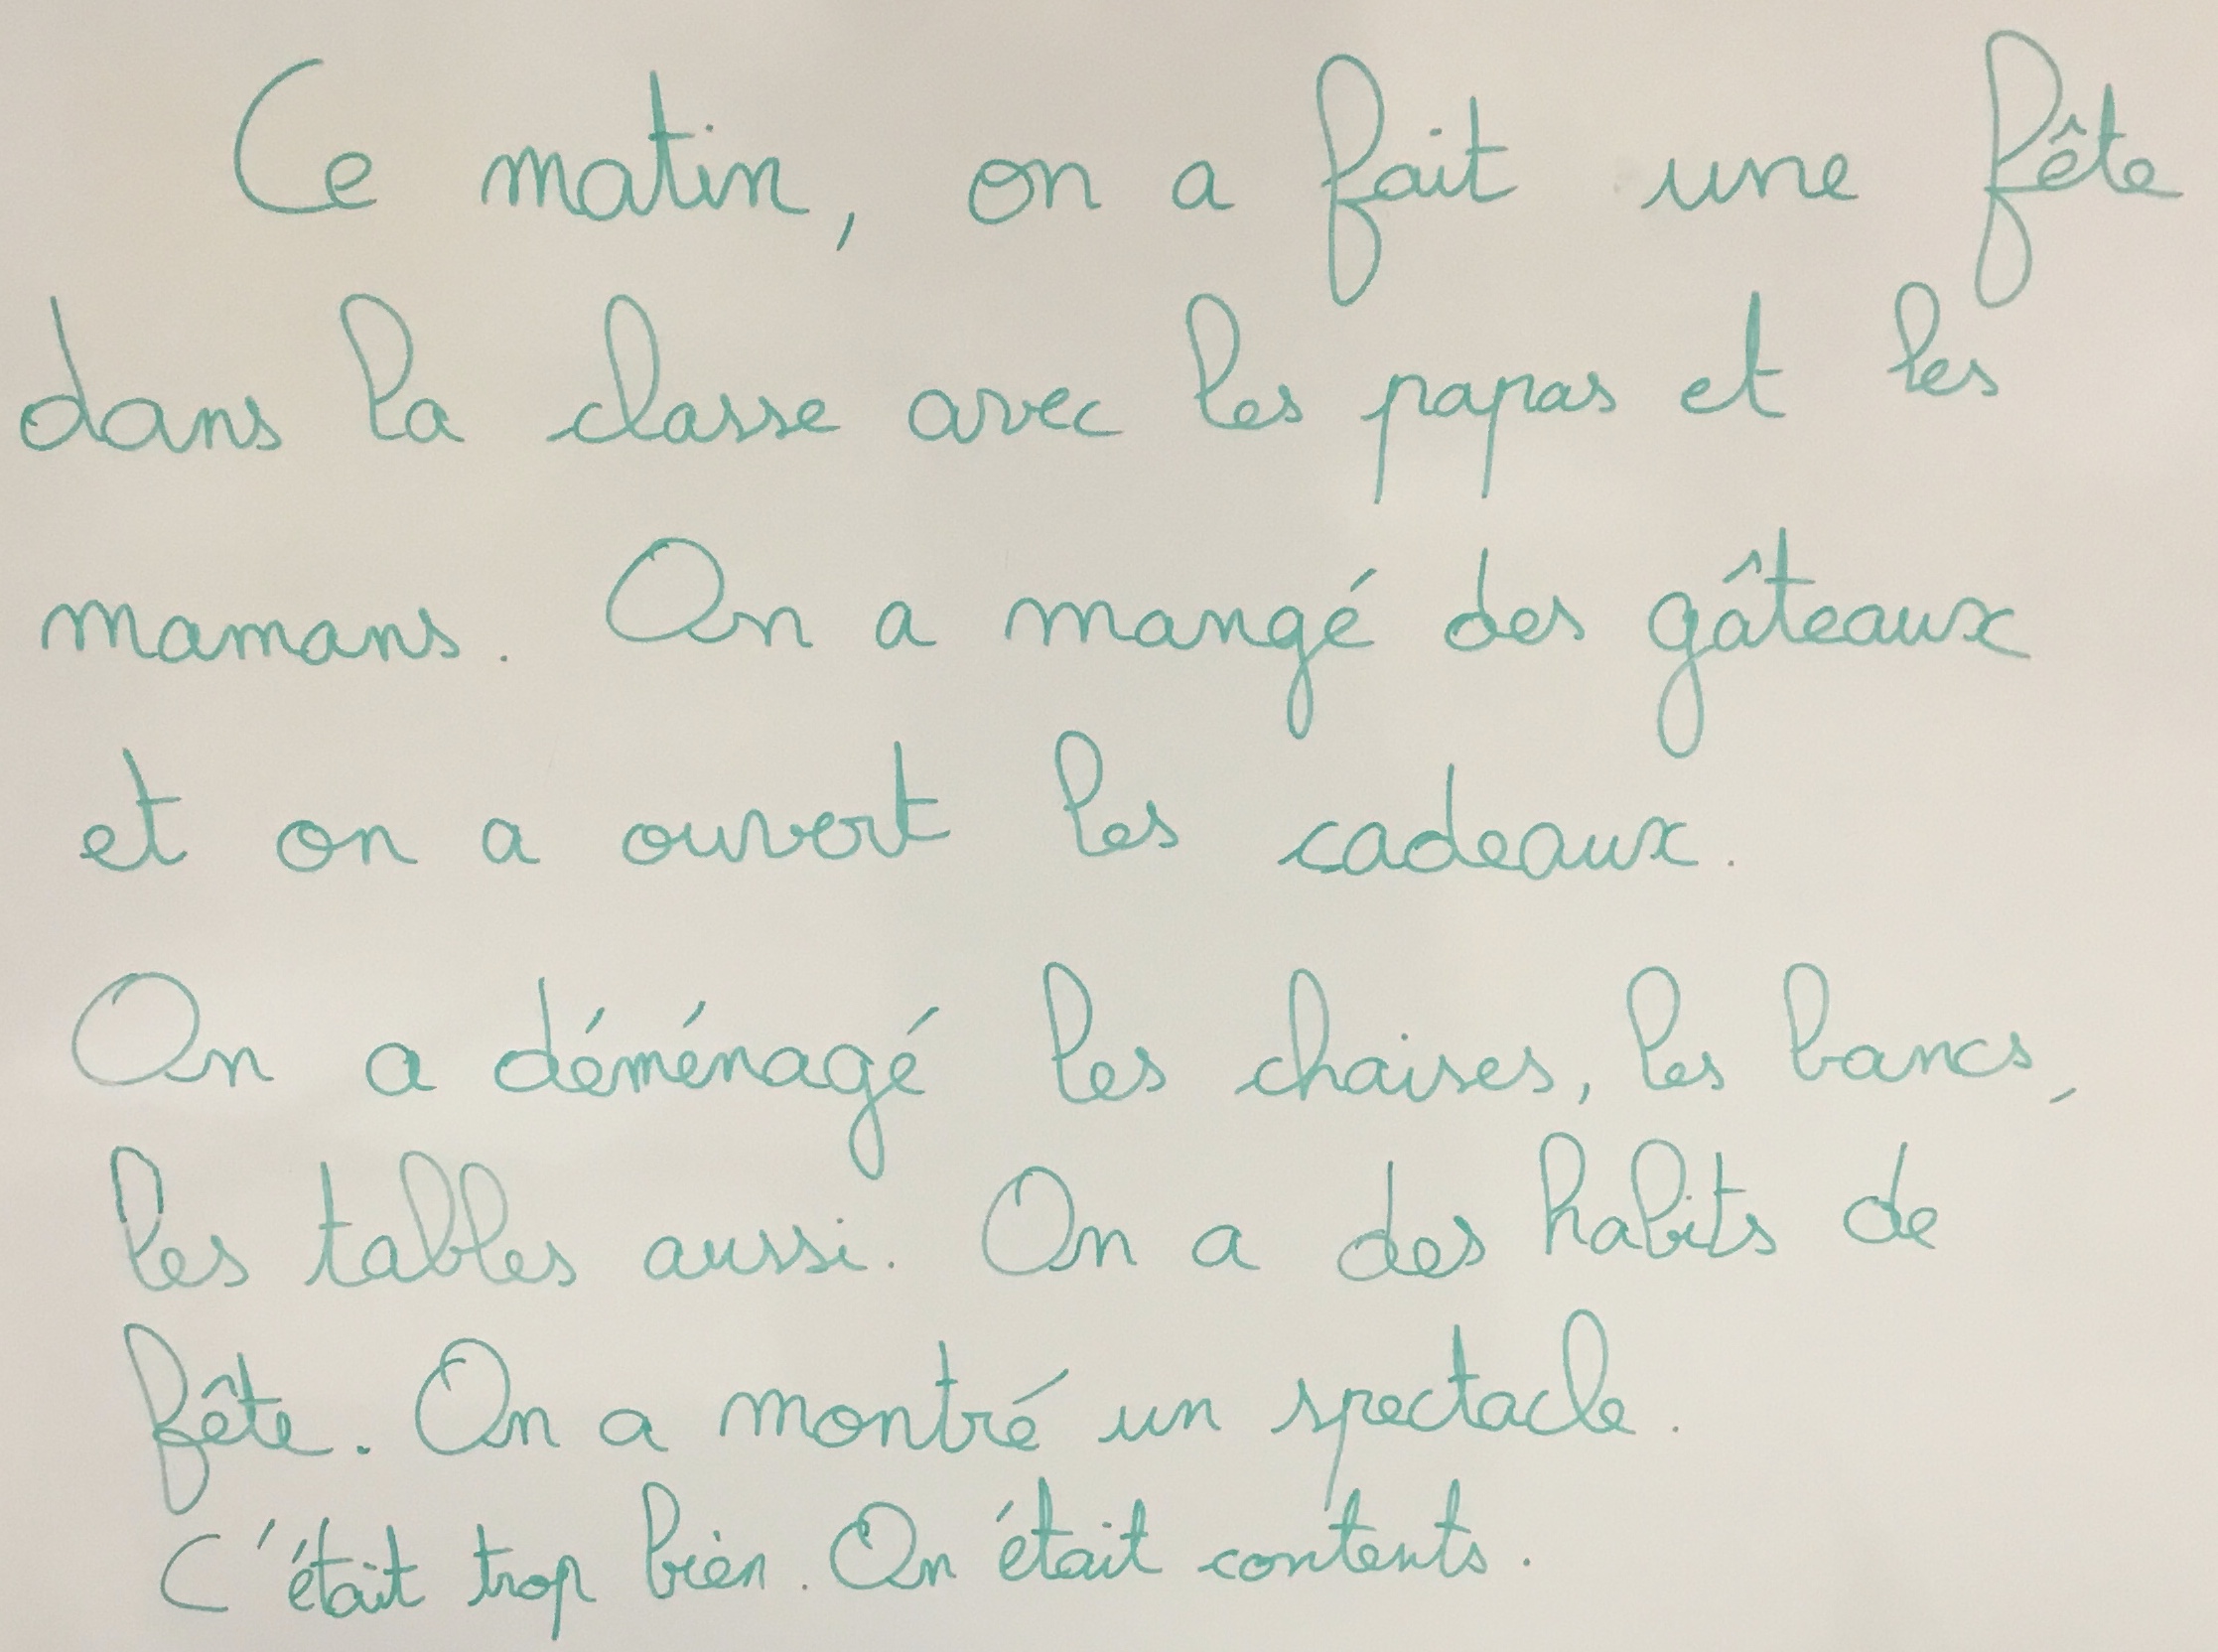 Ce matin, on a fait une fête
dans la classe avec les papas et les
mamans. On a mangé des gâteaux
et on a ouvert les cadeaux.
On a déménagé les chaises, les bancs,
les tables aussi. On a des habits de
fête. On a montré un spectacle.
C'était trop bien. On était contents.